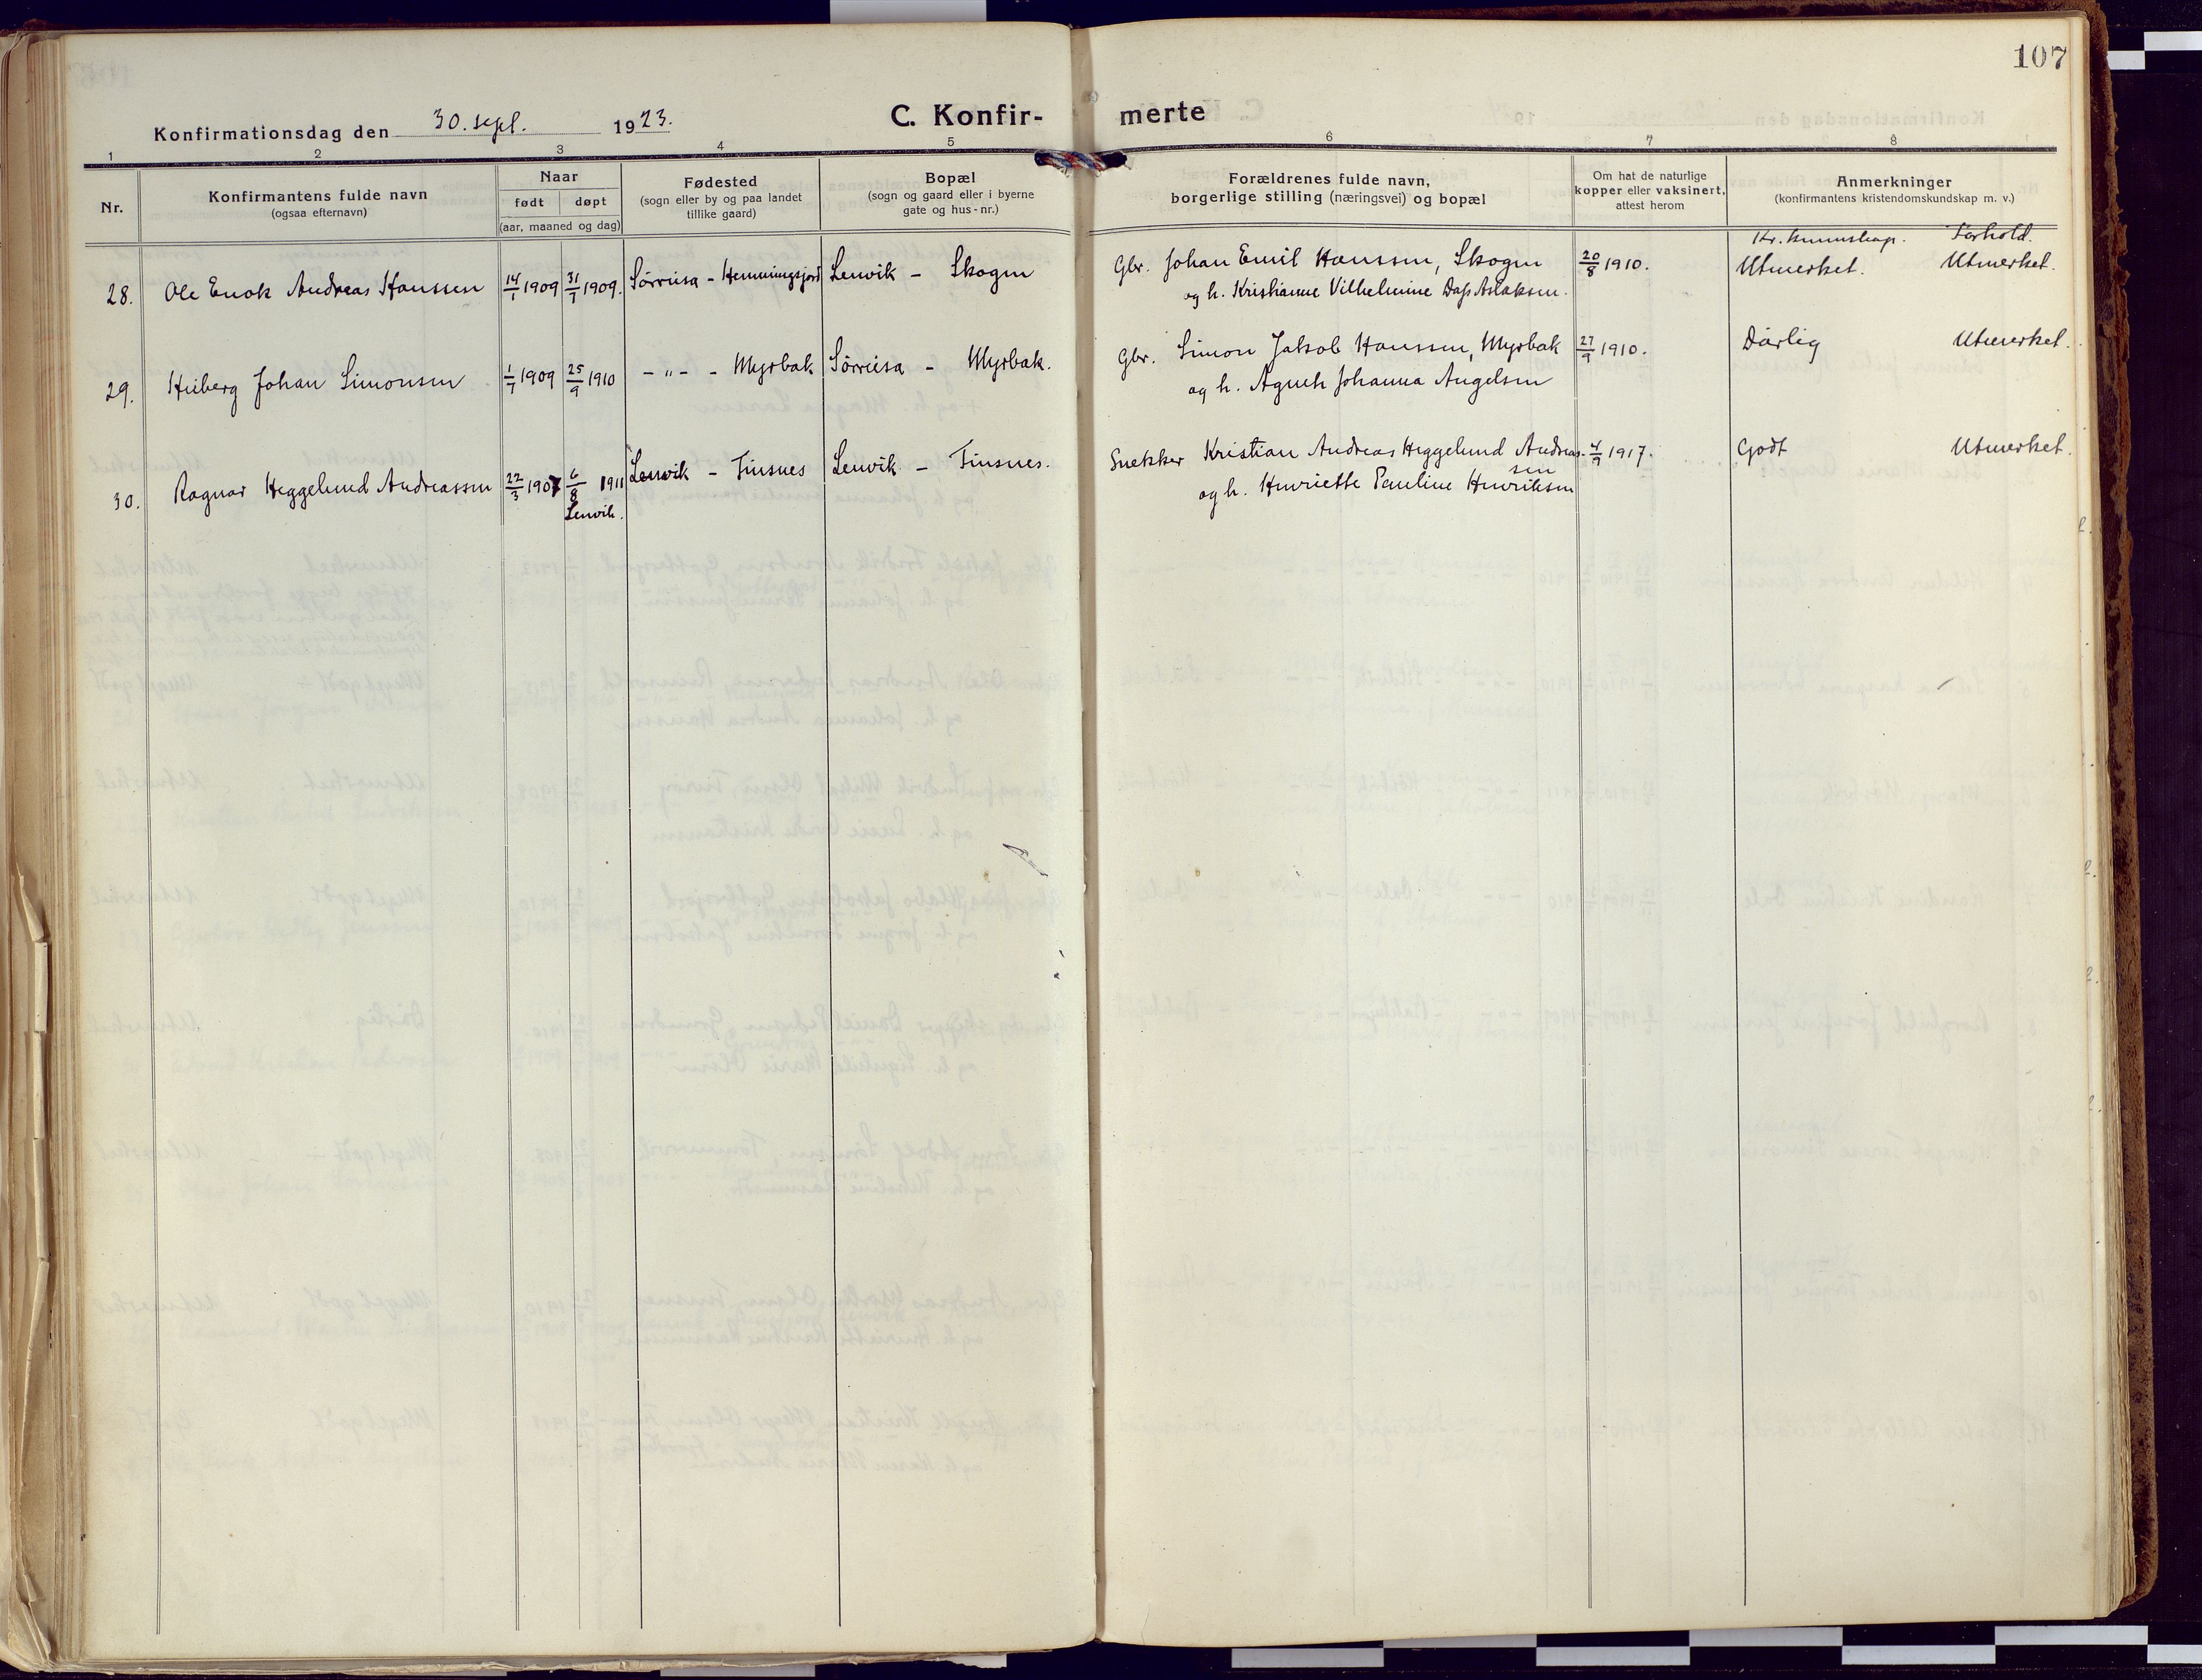 107
Konfirmationsdag den 30. sept. 1923.
C. Konfir-merte
1 2 3 4 5 6 7 8
Nr.
Konfirmantens fulde navn
(ogsaa efternavn)
Naar
født døpt
(aar, maaned og dag)
Fødested
(sogn eller by og paa landet
tillike gaard)
Bopæl
(sogn og gaard eller i byerne
gate og hus-nr.)
Forældrenes fulde navn,
borgerlige stilling (næringsvei) og bopæl
Om hat de naturlige
kopper eller vaksinert,
attest herom
Anmerkninger
(konfirmantens kristendomskundskap m. v.)
Kr. kunnskap. Forhold.
28. Ole Enok Andreas Hanssen 14/1 1909 31/1 1909. Sørreisa - Hemmingsjord Lenvik - Skogen Gbr. Johan Emil Hanssen, Skogen 20/8 1910. Utmerket. Utmerket.
og h. Kristianne Vilhelmine Dass Aslaksen.
29. Heiberg Johan Simonsen 1/7 1909 25/9 1910 - " - - Myrbak Sørreisa - Myrbak. Gbr. Simon Jakob Hanssen, Myrbak 27/9 1910. Dårlig Utmerket.
og h. Agneth Johanna Angelsen
30. Ragnar Heggelund Andreassen 22/3 1907 6/8 1911 Lenvik - Finsnes Lenvik. - Finsnes. Snekker Kristian Andreas Heggelund Andreas- 4/9 1917. Godt Utmerket.
sen
Lenvik. og h. Henriette Pauline Henriksen